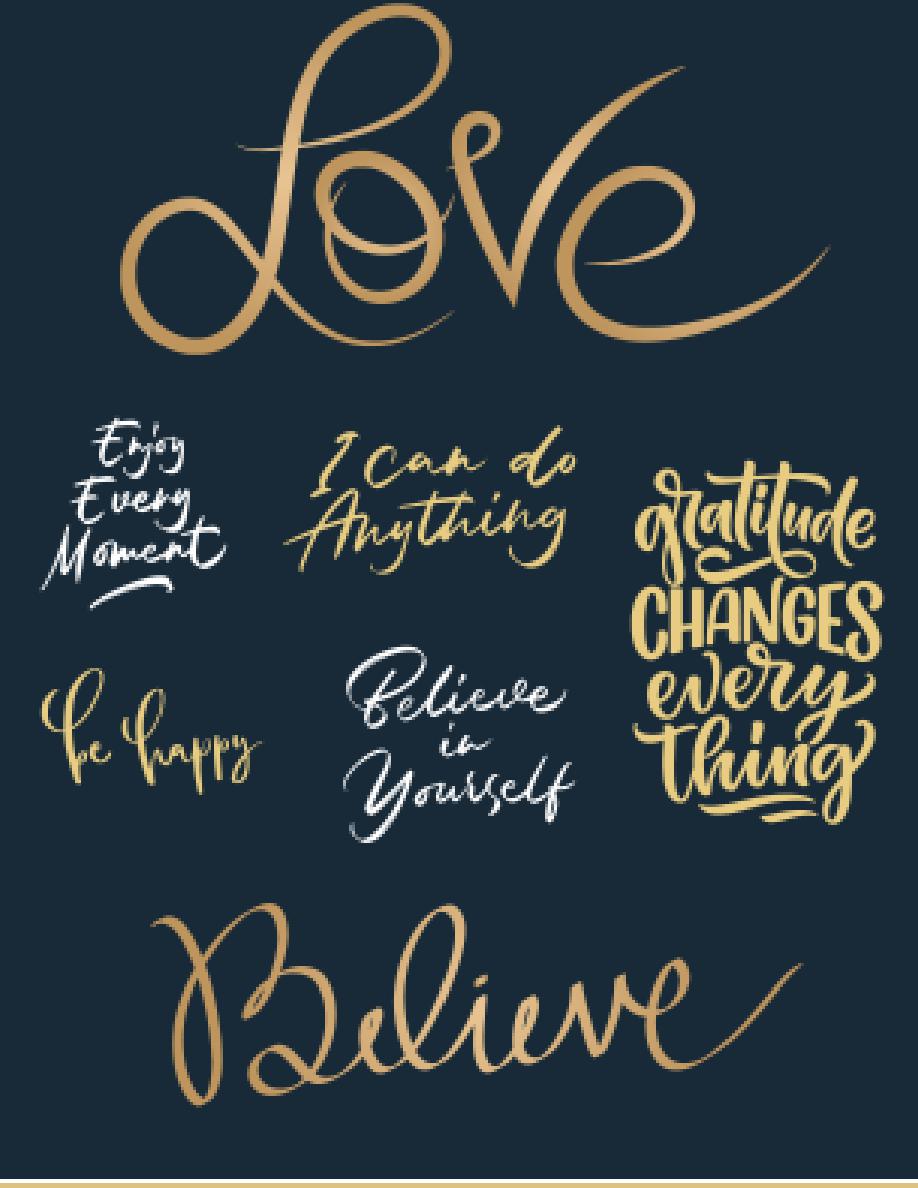 Love
Enjoy
Every
Moment
I can do
Anything
gratitude
CHANGES
every
thing
be happy
Believe
in
Yourself
Believe